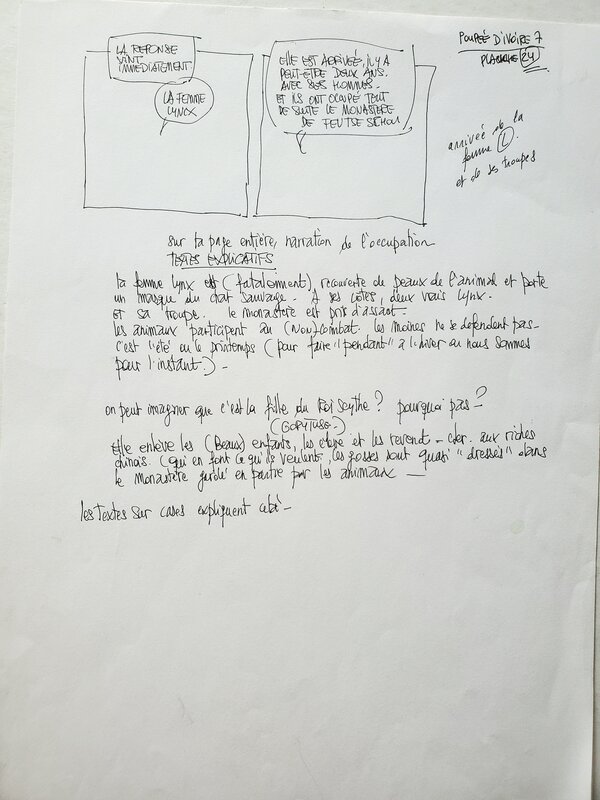 POUPÉE D'IVOIRE 7
PLANCHE 24
LA REPONSE
VINT
IMMEDIATEMENT.
LA FEMME
LYNCX
ELLE EST ARRIVÉE, IL Y A
PEUT-ETRE DEUX ANS.
AVEC SES HOMMES.
ET ILS ONT OCCUPÉ TOUT
DE SUITE LE MONASTERE
DE
arrivée de la
femme L
et de ses troupes
sur la page entière, narration de l'occupation
TEXTES EXPLICATIFS
la femme lynx est (fatalement) recouverte de peaux de l'animal et porte
un masque du chat sauvage. A ses côtés, deux vrais lynx.
et sa troupe. le monastère est pris d'assaut.
les animaux participent au (non) combat. les moines ne se defendent pas-
c'est l'été ou le printemps (pour faire "pendant" à l'hiver où nous sommes
pour l'instant.) -
on peut imaginer que c'est la fille du Roi Scythe ? pourquoi pas - ?
Elle enlève les (Beaux) enfants, les élève et les revend - cher. aux riches
chinois. (qui en font ce qu'ils veulent, les gosses sont quasi "dressés" dans
le monastère gardé en partie par les animaux -
les textes sur cases expliquent cela -